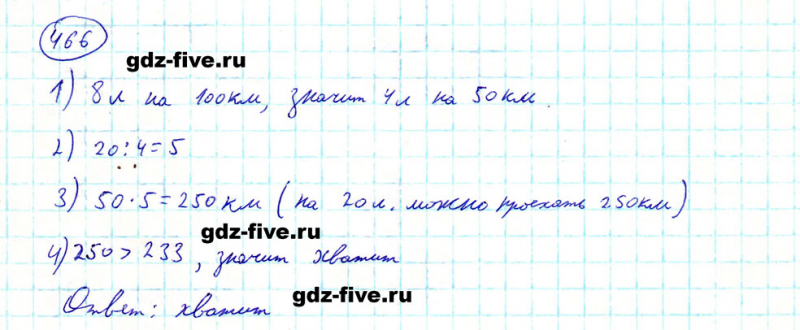 466
gdz-five.ru
1) 8л на 100км, значит 4л на 50км.
2) 20:4=5
3) 50·5=250км (на 20л. можно проехать 250км)
gdz-five.ru
4) 250>233, значит хватит
Ответ: хватит
gdz-five.ru